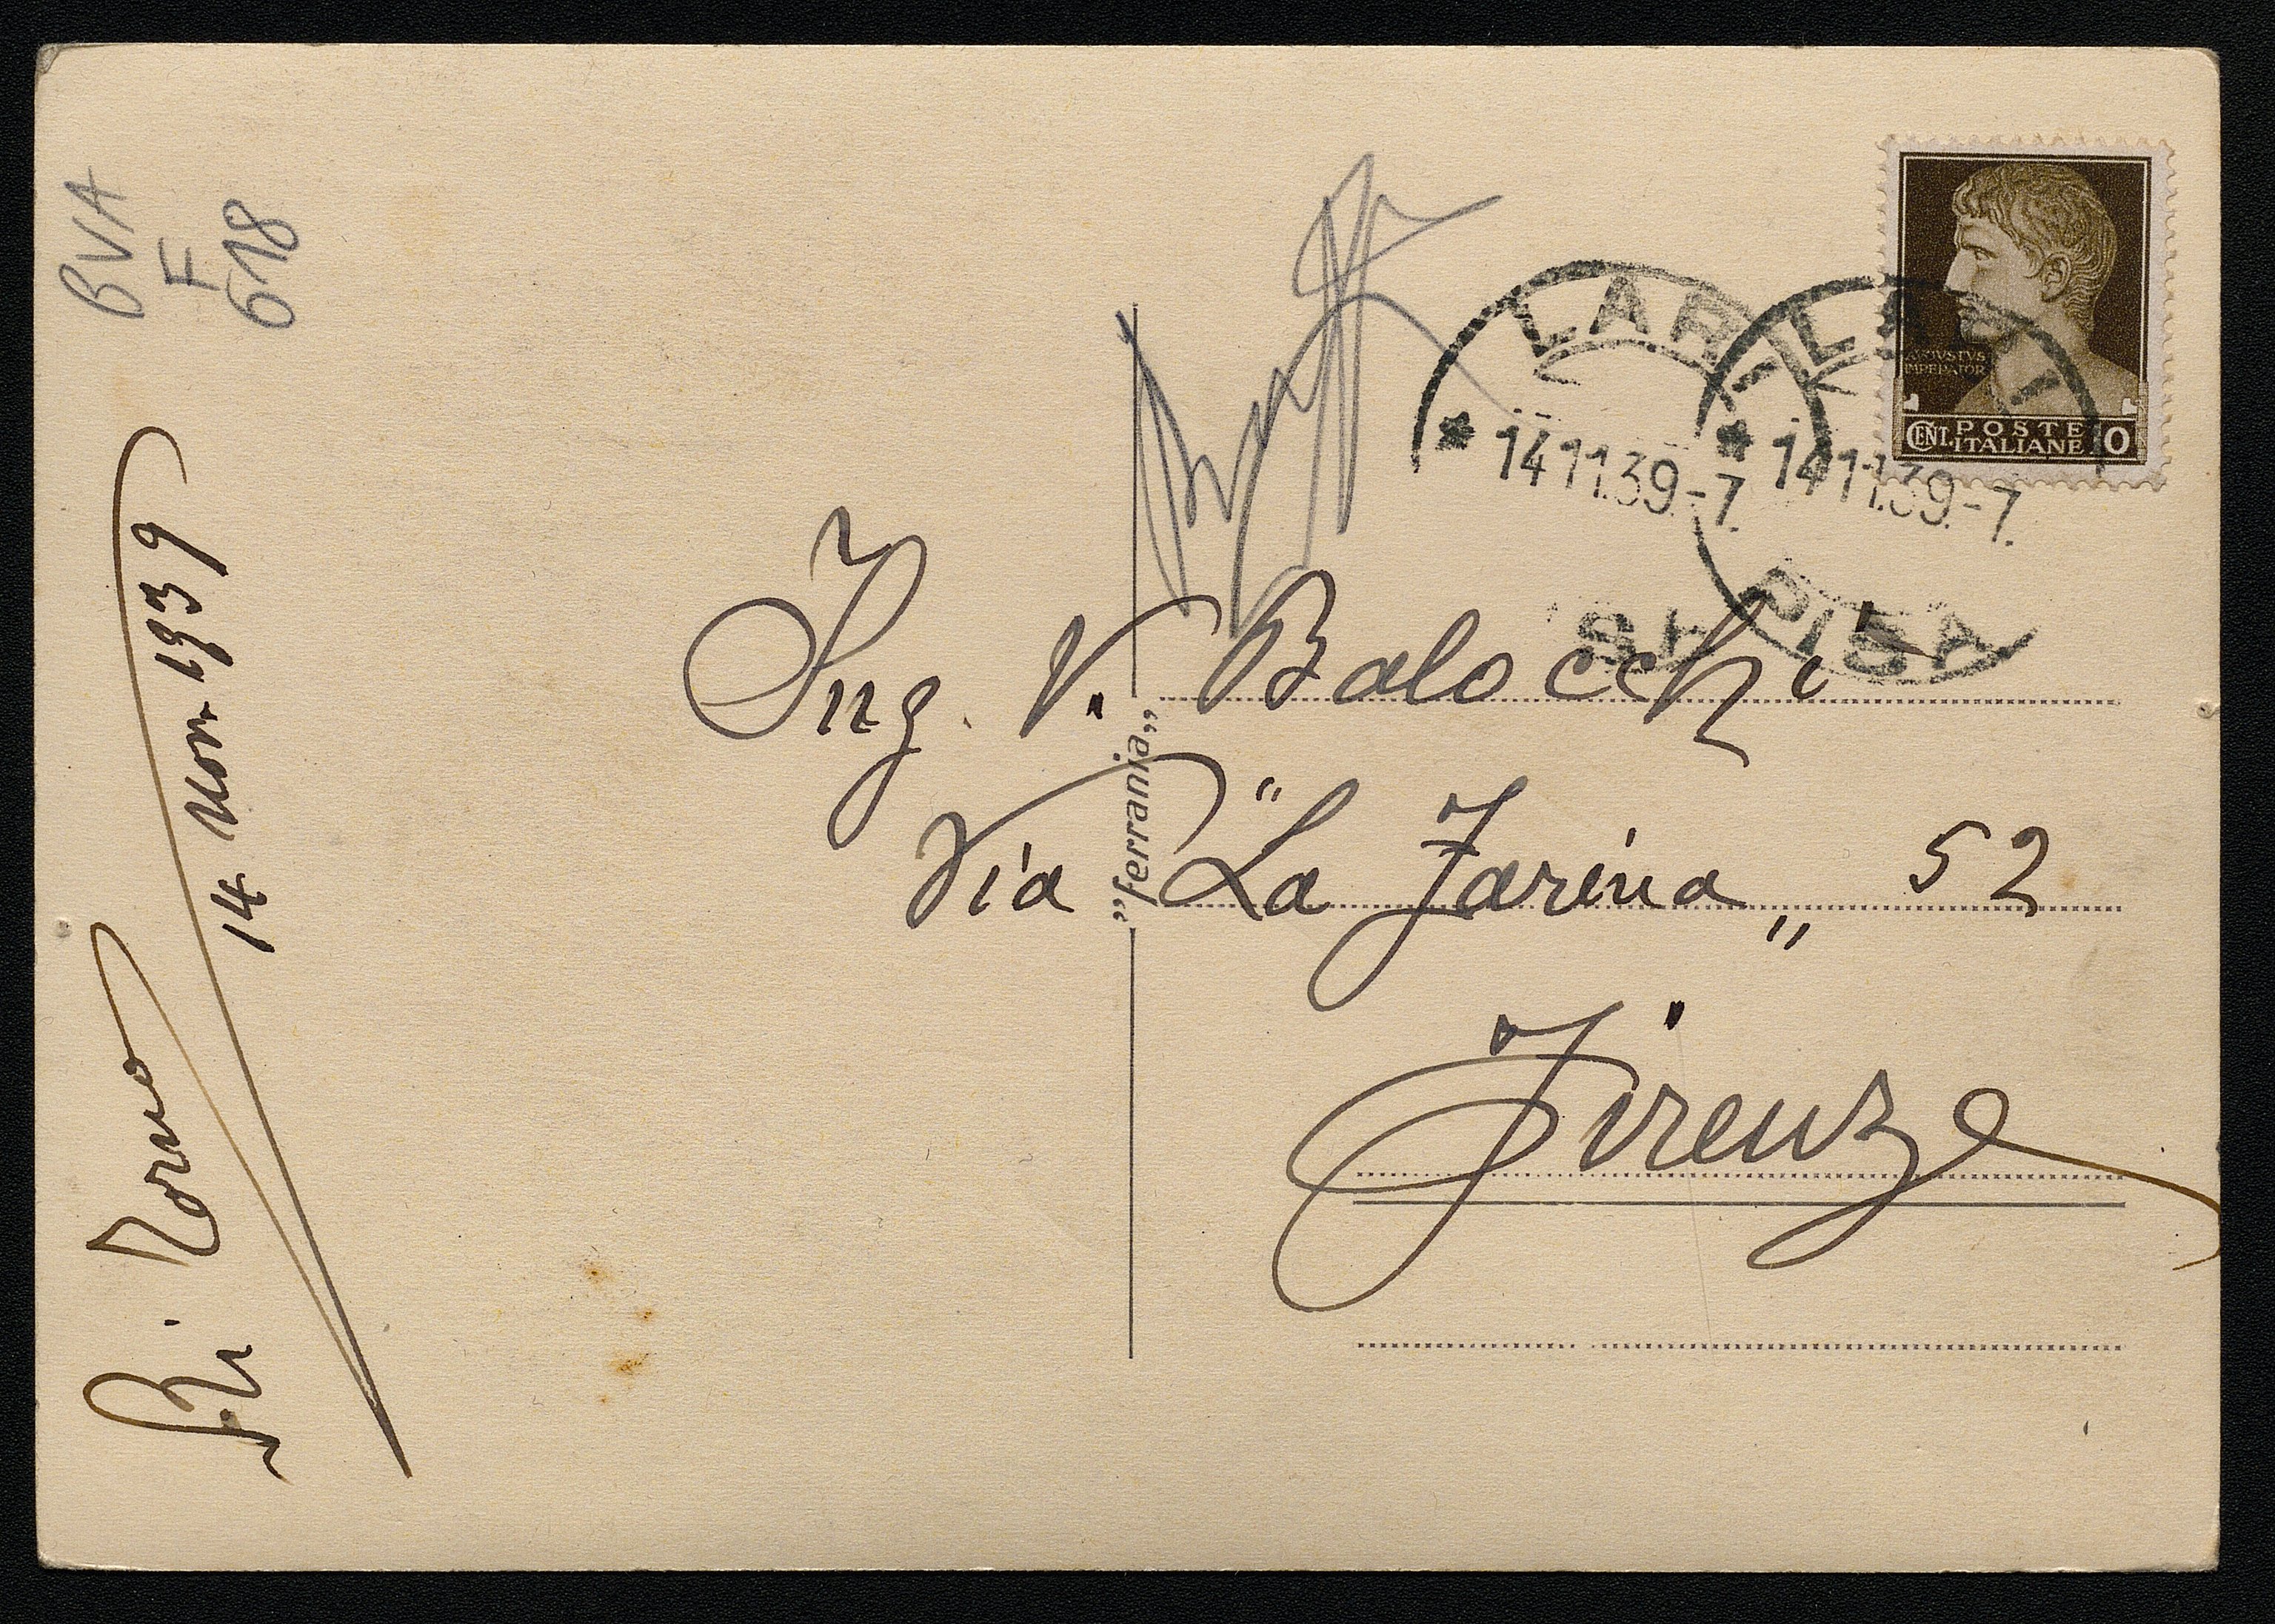 BVA
F
618
14 Nov. 1939
LARI
* 14 11.39.-7.
PISA
LARI
* 14 11.39.-7.
AVGVSTVS
IMPERATOR
CENT. POSTE ITALIANE 10
Ing. V. Balocchi
Via "La Farina„ 52
Firenze
“ferrania„